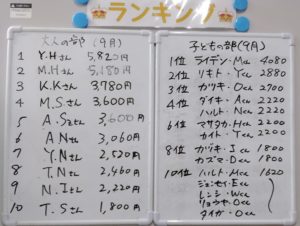 ランキング
大人の部(9月)
1 Y.Hさん 5,820円
2 M.Hさん 5,180円
3 K.Kさん 3,780円
4 M.Sさん 3,600円
5 A.Sさん 3,600円
6 A.Nさん 3,060円
7 Y.Nさん 2,520円
8 T.Nさん 2,460円
9 N.Iさん 2,220円
10 T.Sさん 1,800円
子どもの部(9月)
1位 ライデン・Mくん 4080
2位 リキト・Tくん 2880
3位 カツキ・Oくん 2700
4位 ダイキ・Aくん 2220
ハルト・Nくん 2220
6位 マサタカ・Hくん 2200
カイト・Yくん 2200
8位 カツキ・Iくん 1800
カズマ・Dくん 1800
10位 ハルト・Mくん 1620
ジョンセイ・Eくん
レンジ・Wくん
リョウヤ・Oくん
タイガ・Oくん